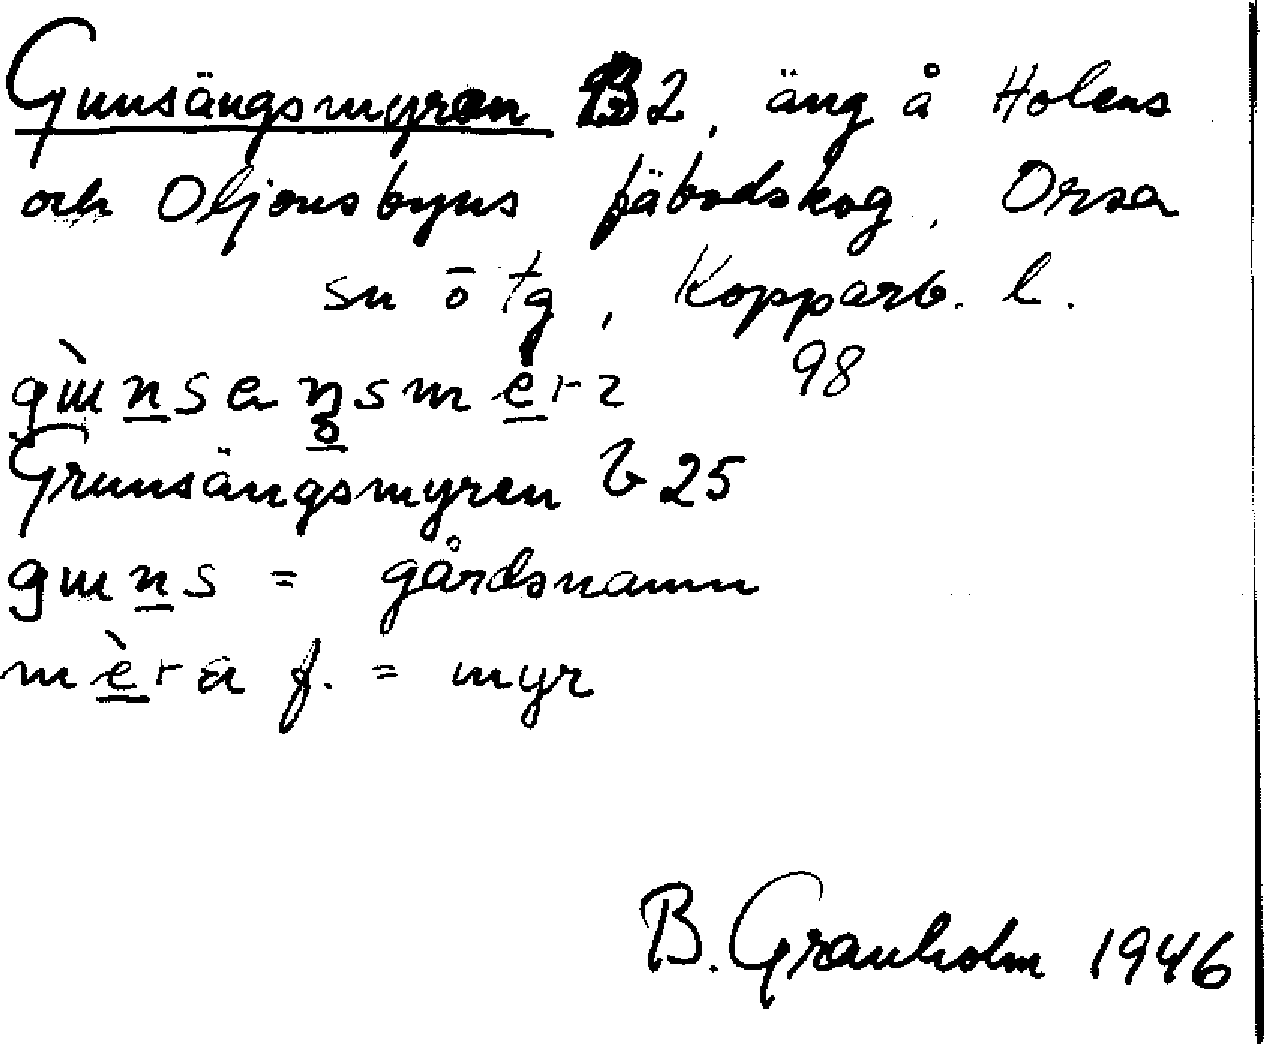 Gunsängsmyren B2, äng å Holens
och Oljonsbyns fäbodskog, Orsa
sn ö tg, Kopparb. l.
98
gɯ̀n̲saŋsme̲rɩ
Grunsängsmyren b 25
gɯn̲s = gårdsnamn
mè̲ra f. = myr
B. Granholm 1946